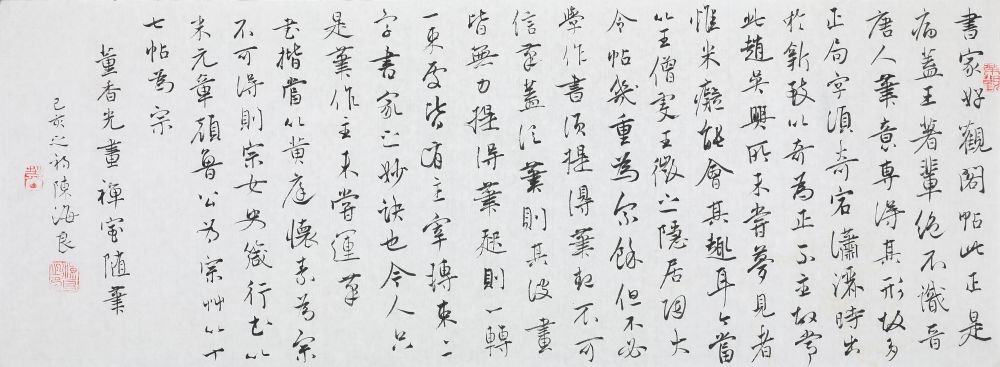 書家好觀閣帖此正是
病蓋王著輩絕不識晉
唐人筆意專得其形故多
正局字須奇宕瀟灑時出
於新致以奇為正不主故常
此趙吳興所未嘗夢見者
惟米癡能會其趣耳今當
以王僧虔王微之隱居大
令帖幾重為宗餘但不必
學作書須提得筆起不可
信筆蓋信筆則其波畫
皆無力提得筆起則一轉
一束處皆有主宰轉束二
字書家之妙訣也今人只
是筆作主未嘗運筆
書楷當以黃庭懷素為宗
不可得則宗女史箴行書以
米元章顏魯公為宗艸以十
七帖為宗
董香光畫禪室隨筆
己亥之初陳海良